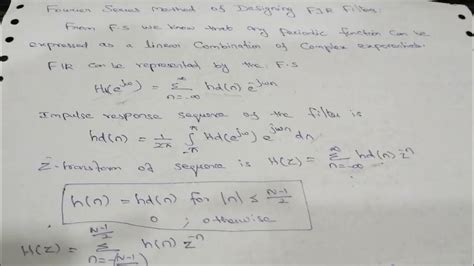 Fourier Series method of Designing FIR Filter:
From F.S we know that any periodic function can be
expressed as a linear Combination of Complex exponentials.
FIR can be represented by the F.S
Hd(e^jω) = Σ_{n=-∞}^{∞} hd(n) e^-jωn
Impulse response sequence of the filter is
hd(n) = 1/2π ∫_{-π}^{π} Hd(e^jω) e^jωn dn
Z-transform of sequence is H(Z) = Σ_{n=-∞}^{∞} hd(n) z^-n
h(n) = hd(n) for |n| ≤ N-1/2
0 ; otherwise
H(Z) = Σ_{n=-(N-1/2)}^{N-1/2} h(n) z^-n